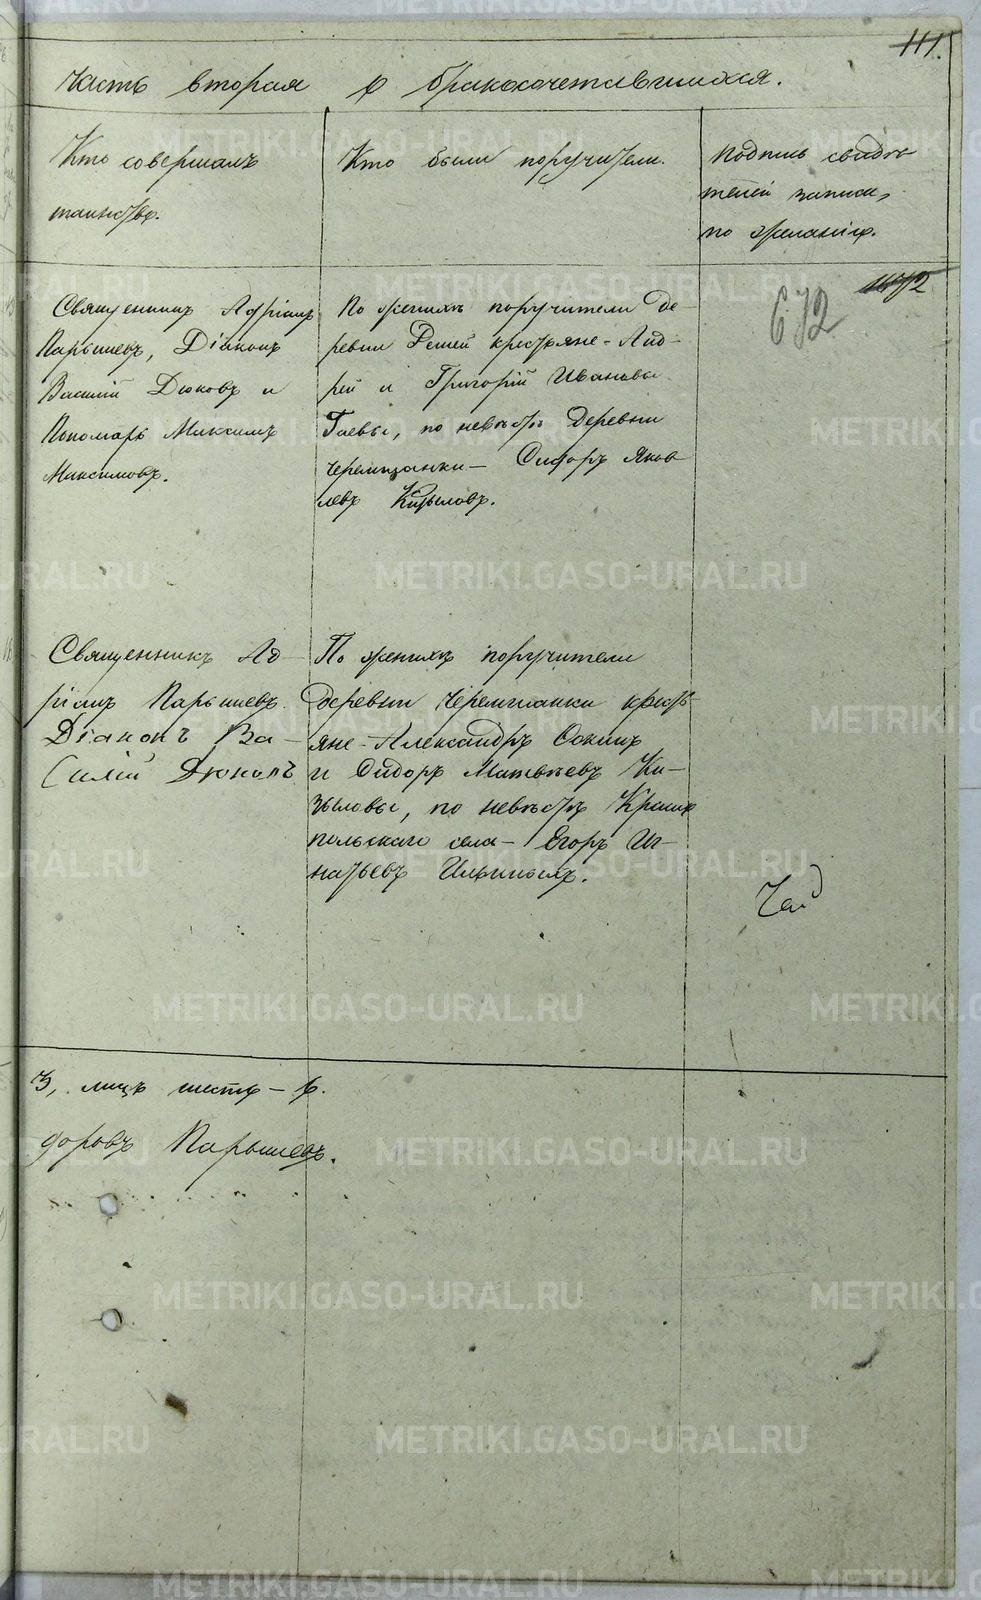 111.
Часть вторая о бракосочетавшихся.
Кто совершалъ
таинство.
Кто были поручители.
Подпись свидѣ-
телей записи,
по желанію.
672
Священникъ Адріанъ
Парышевъ, Діаконъ
Василій Дюковъ и
Пономарь Максимъ
Максимовъ.
По женихѣ поручители де-
ревни крестьяне - Анд-
рей и Григорій Ивановы
Гаевы, по невѣстѣ деревни
Черемшанки - Сидоръ Яков
левъ Кызыловъ.
Священникъ Ад-
ріанъ Парышевъ.
Діаконъ Ва-
силій Дюковъ
По женихѣ поручители
деревни Черемшанки кресть-
яне - Александръ
и Сидоръ Матвѣевъ Кы-
зыловы, по невѣстѣ
польскаго села - Егоръ Иг-
натьевъ Ильиныхъ.
3, лицъ шесть - 6.
доровъ Парышевъ.
METRIKI.GASO-URAL.RU